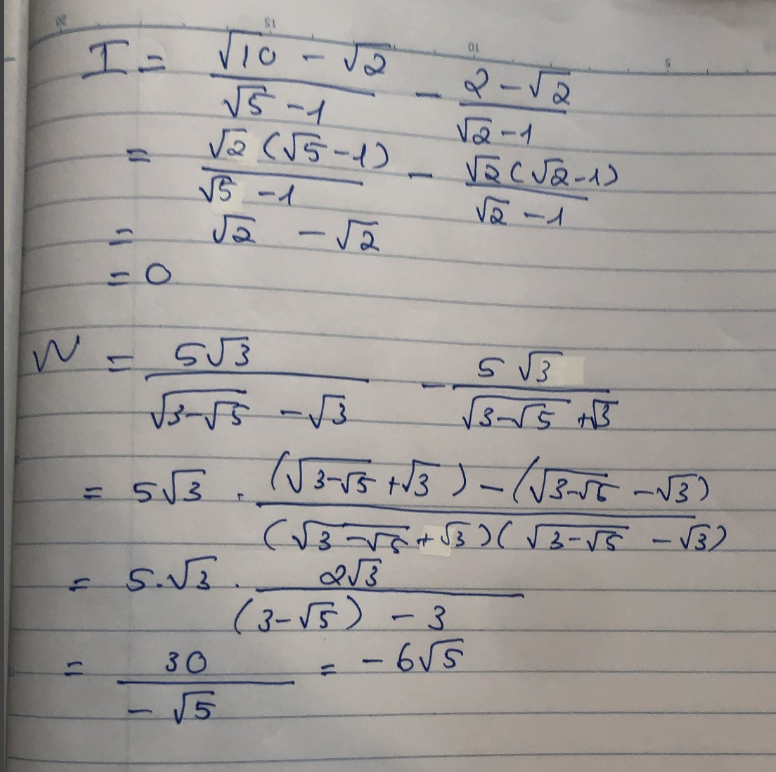 I = (√10 - √2)/(√5 - 1) - (2 - √2)/(√2 - 1)
= (√2 (√5 - 1))/(√5 - 1) - (√2 (√2 - 1))/(√2 - 1)
= √2 - √2
= 0
W = (5√3)/(√(3-√5) - √3) - (5√3)/(√(3-√5) + √3)
= 5√3 . ((√(3-√5) + √3) - (√(3-√5) - √3))/((√(3-√5) + √3)(√(3-√5) - √3))
= 5.√3 . (2√3)/((3-√5) - 3)
= 30/(-√5) = -6√5